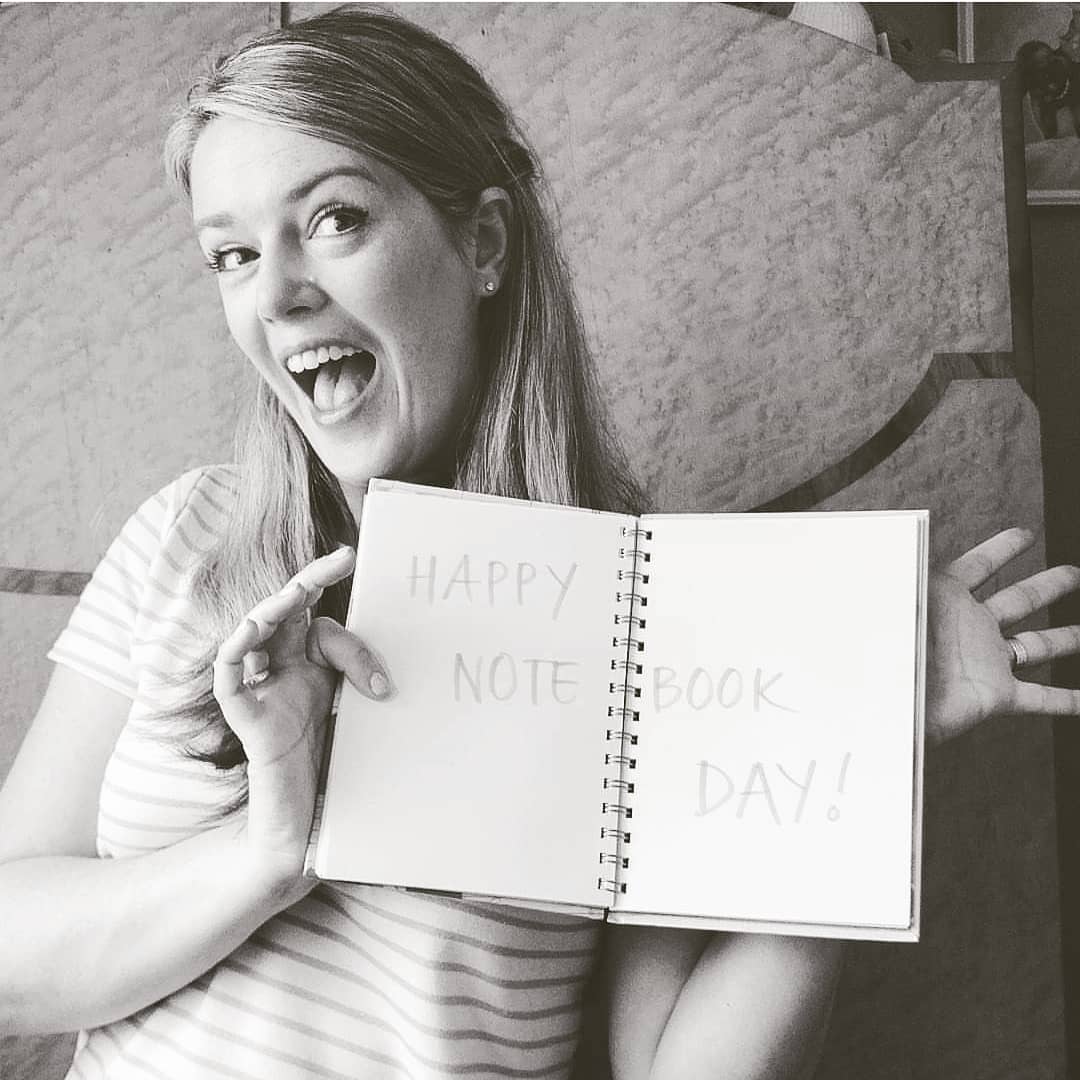 HAPPY
NOTE BOOK
DAY!